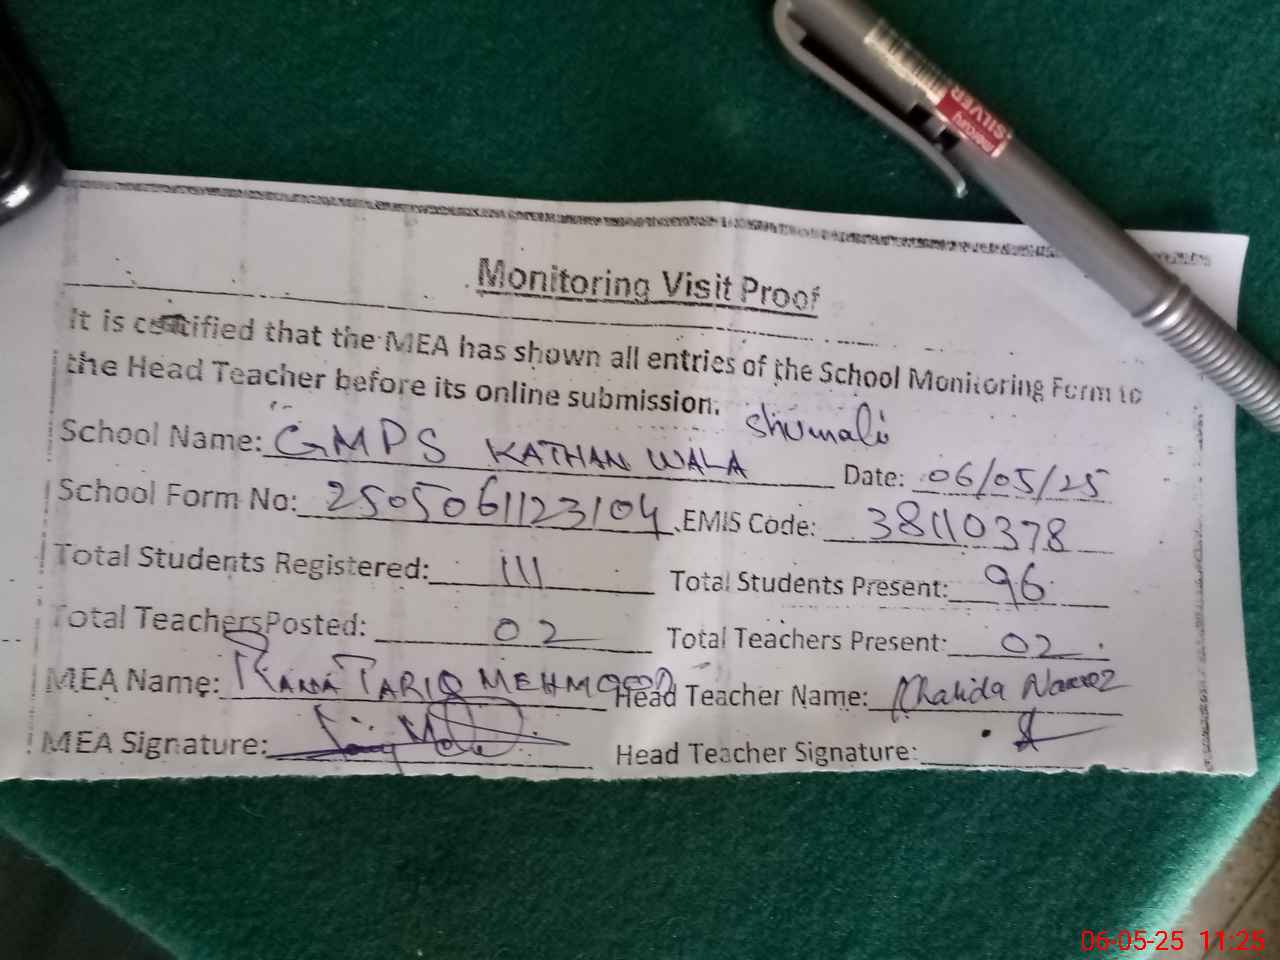 mercury
SILVER
Monitoring Visit Proof
It is certified that the MEA has shown all entries of the School Monitoring Form to
the Head Teacher before its online submission.
School Name: GMPS KATHAN WALA Shumali Date: 06/05/25
School Form No: 2505061123104 EMIS Code: 38110378
Total Students Registered: 111 Total Students Present: 96
Total Teachers Posted: 02 Total Teachers Present: 02
MEA Name: RANA TARIQ MEHMOOD Head Teacher Name: Khalida Nawaz
MEA Signature: Head Teacher Signature:
06-05-25 11:25